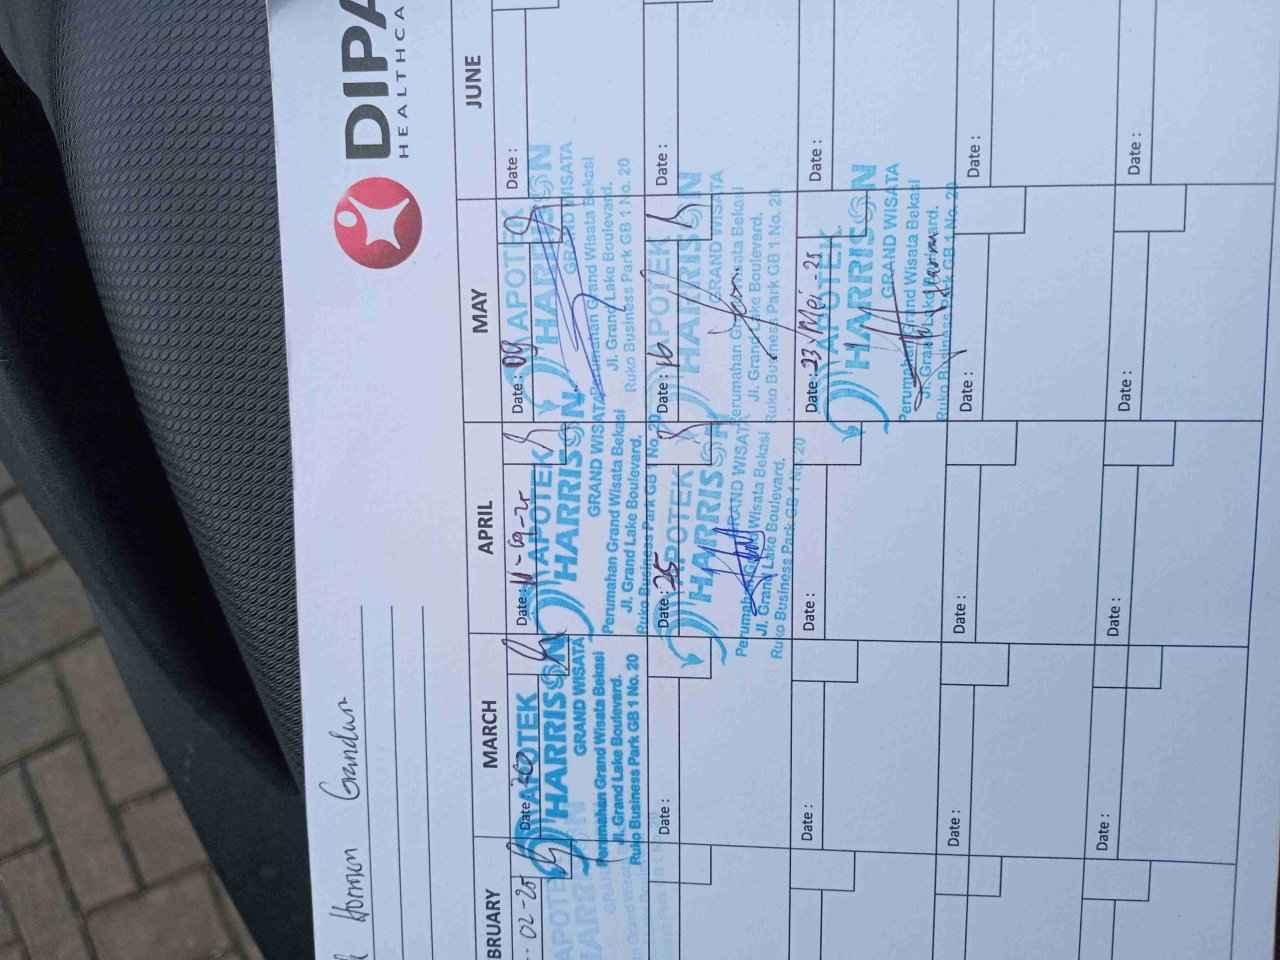 DIPA
HEALTHCA
Harrison Grandwis
BRUARY
MARCH
APRIL
MAY
JUNE
02-25
Date :
Date : 11-04-25
Date : 09
Date :
APOTEK
HARRISON
GRAND WISATA
Perumahan Grand Wisata Bekasi
Jl. Grand Lake Boulevard.
Ruko Business Park GB 1 No. 20
APOTEK
HARRISON
GRAND WISATA
Perumahan Grand Wisata Bekasi
Jl. Grand Lake Boulevard.
Ruko Business Park GB 1 No. 20
APOTEK
HARRISON
GRAND WISATA
Perumahan Grand Wisata Bekasi
Jl. Grand Lake Boulevard.
Ruko Business Park GB 1 No. 20
Date :
Date : 25
Date : 16
Date :
APOTEK
HARRISON
GRAND WISATA
Perumahan Grand Wisata Bekasi
Jl. Grand Lake Boulevard.
Ruko Business Park GB 1 No. 20
APOTEK
HARRISON
GRAND WISATA
Perumahan Grand Wisata Bekasi
Jl. Grand Lake Boulevard.
Ruko Business Park GB 1 No. 20
Date :
Date :
Date : 23 Mei - 25
Date :
APOTEK
HARRISON
GRAND WISATA
Perumahan Grand Wisata Bekasi
Jl. Grand Lake Boulevard.
Ruko Business Park GB 1 No. 20
Date :
Date :
Date :
Date :
Date :
Date :
Date :
Date :